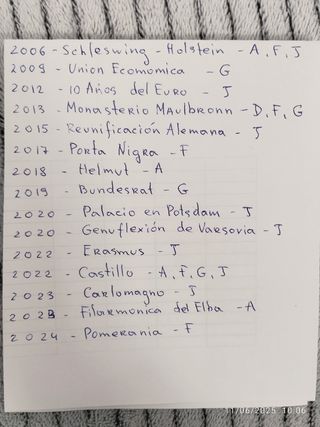 2006 - Schleswing - Holstein - A, F, J
2009 - Union Economica - G
2012 - 10 Años del Euro - J
2013 - Monasterio Maulbronn - D, F, G
2015 - Reunificación Alemana - J
2017 - Porta Nigra - F
2018 - Helmut - A
2019 - Bundesrat - G
2020 - Palacio en Potsdam - J
2020 - Genuflexión de Varsovia - J
2022 - Erasmus - J
2022 - Castillo - A, F, G, J
2023 - Carlomagno - J
2023 - Filarmonica del Elba - A
2024 - Pomerania - F
11/06/2025 10:06